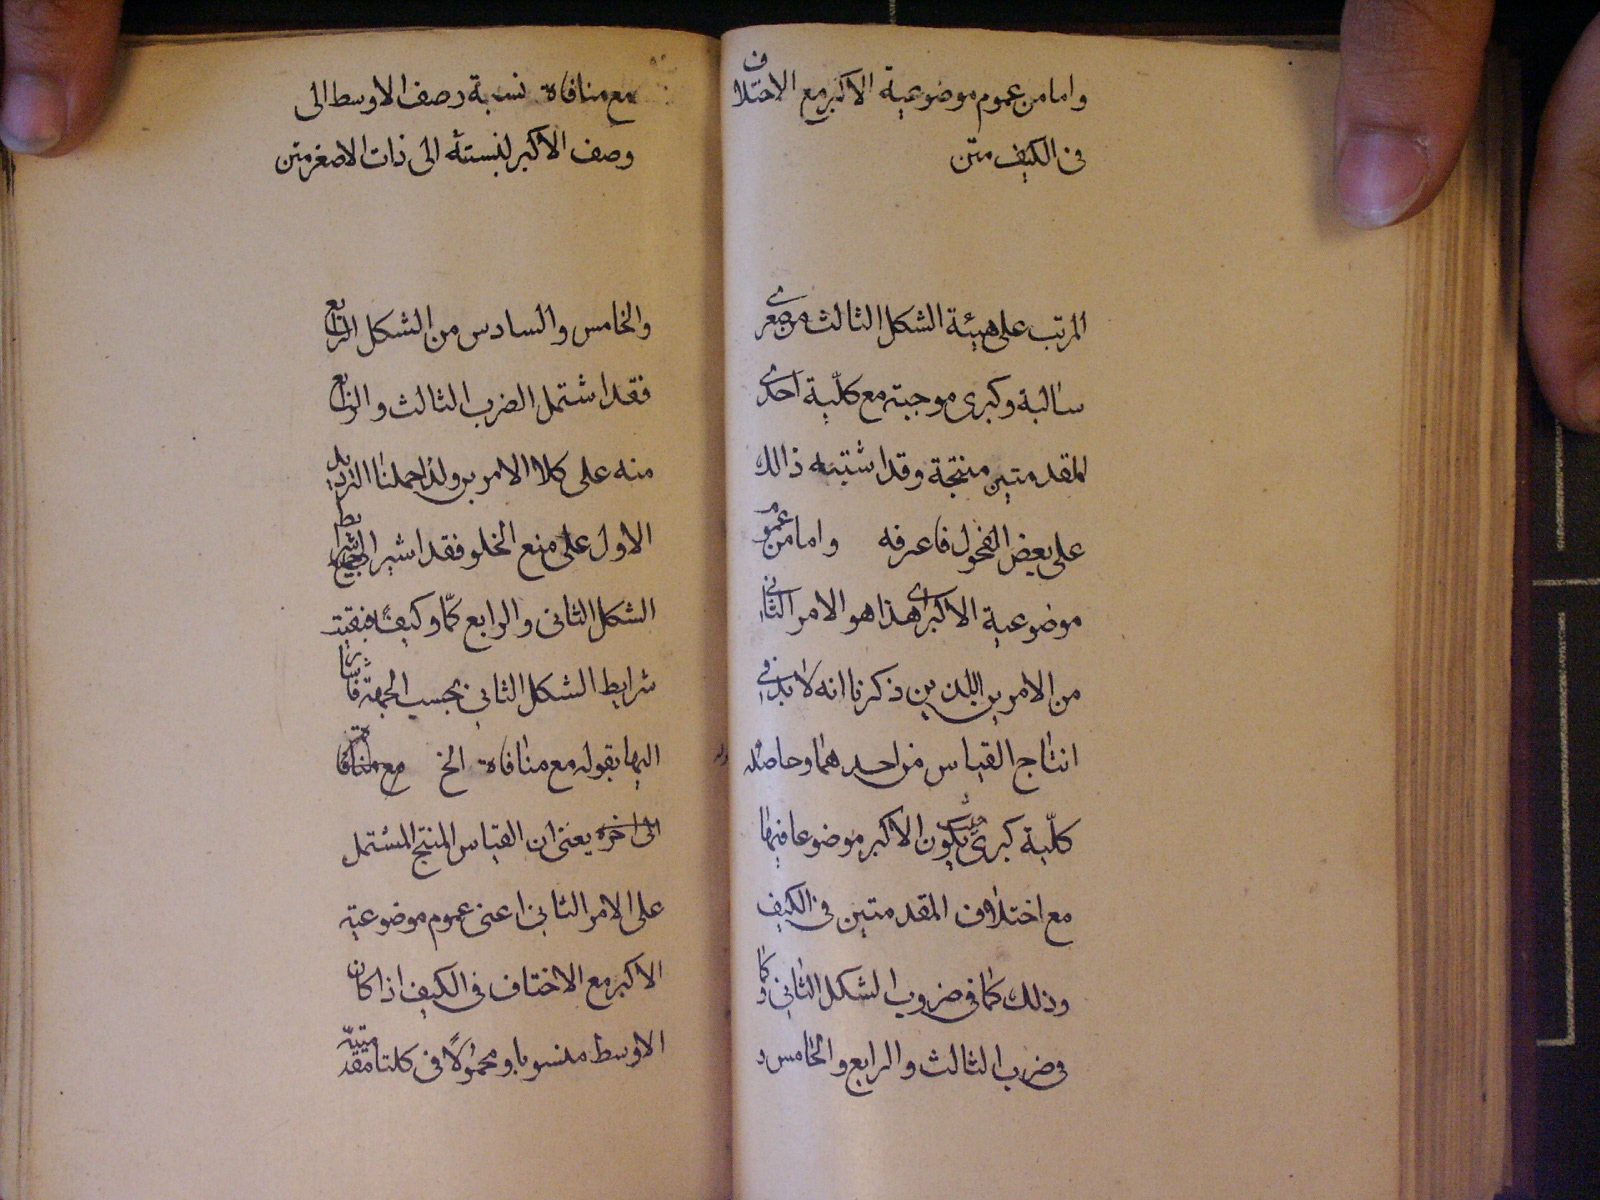 واما من عموم موضوعية الاكبر مع الاختلاف
فى الكيف متن
المرتب على هيئة الشكل الثالث من صغرى
سالبة وكبرى موجبة مع كلّية احدى
المقدمتين منتجة وقد اشتبه ذالك
على بعض الفحول فاعرفه واما من عموم
موضوعية الاكبر اى هذا هو الامر الثانى
من الامرين اللذين ذكرنا انه لا بد فى
انتاج القياس من احدهما وحاصله
كلّية كبرى يكون الاكبر موضوعا فيها
مع اختلاف المقدمتين فى الكيف
وذلك كما فى ضروب الشكل الثانى وكما
فى ضرب الثالث والرابع والخامس و
مع منافاة نسبة وصف الاوسط الى
وصف الاكبر لنسبته الى ذات الاصغر متن
والخامس والسادس من الشكل الرابع
فقد اشتمل الضرب الثالث والرابع
منه على كلا الامرين ولذا حملنا الترديد
الاول على منع الخلو فقد اشير الى جميع شرايط
الشكل الثانى والرابع كمّا وكيفًا فبقيت
شرايط الشكل الثانى بحسب الجهة فاشار
اليها بقوله مع منافاة الخ مع منافاة
الى اخره يعنى ان القياس المنتج المشتمل
على الامر الثانى اعنى عموم موضوعية
الاكبر مع الاختاف فى الكيف اذا كان
الاوسط منسوبا ومحمولًا فى كلتا مقدمتيه